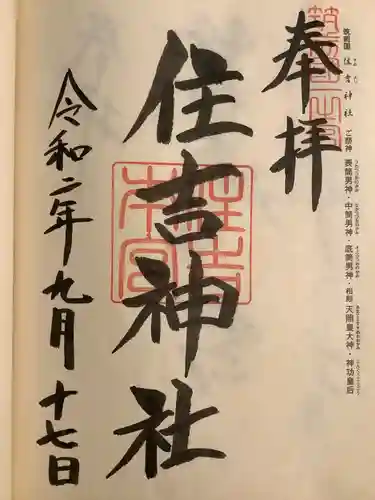 筑前國 住吉神社 ご祭神 表筒男神・中筒男神・底筒男神・相殿 天照皇大神・神功皇后
奉拝
住吉神社
令和二年九月十七日